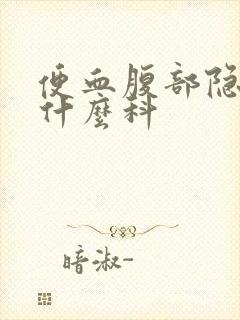 便血腹部隐
什麼科
暗淑-